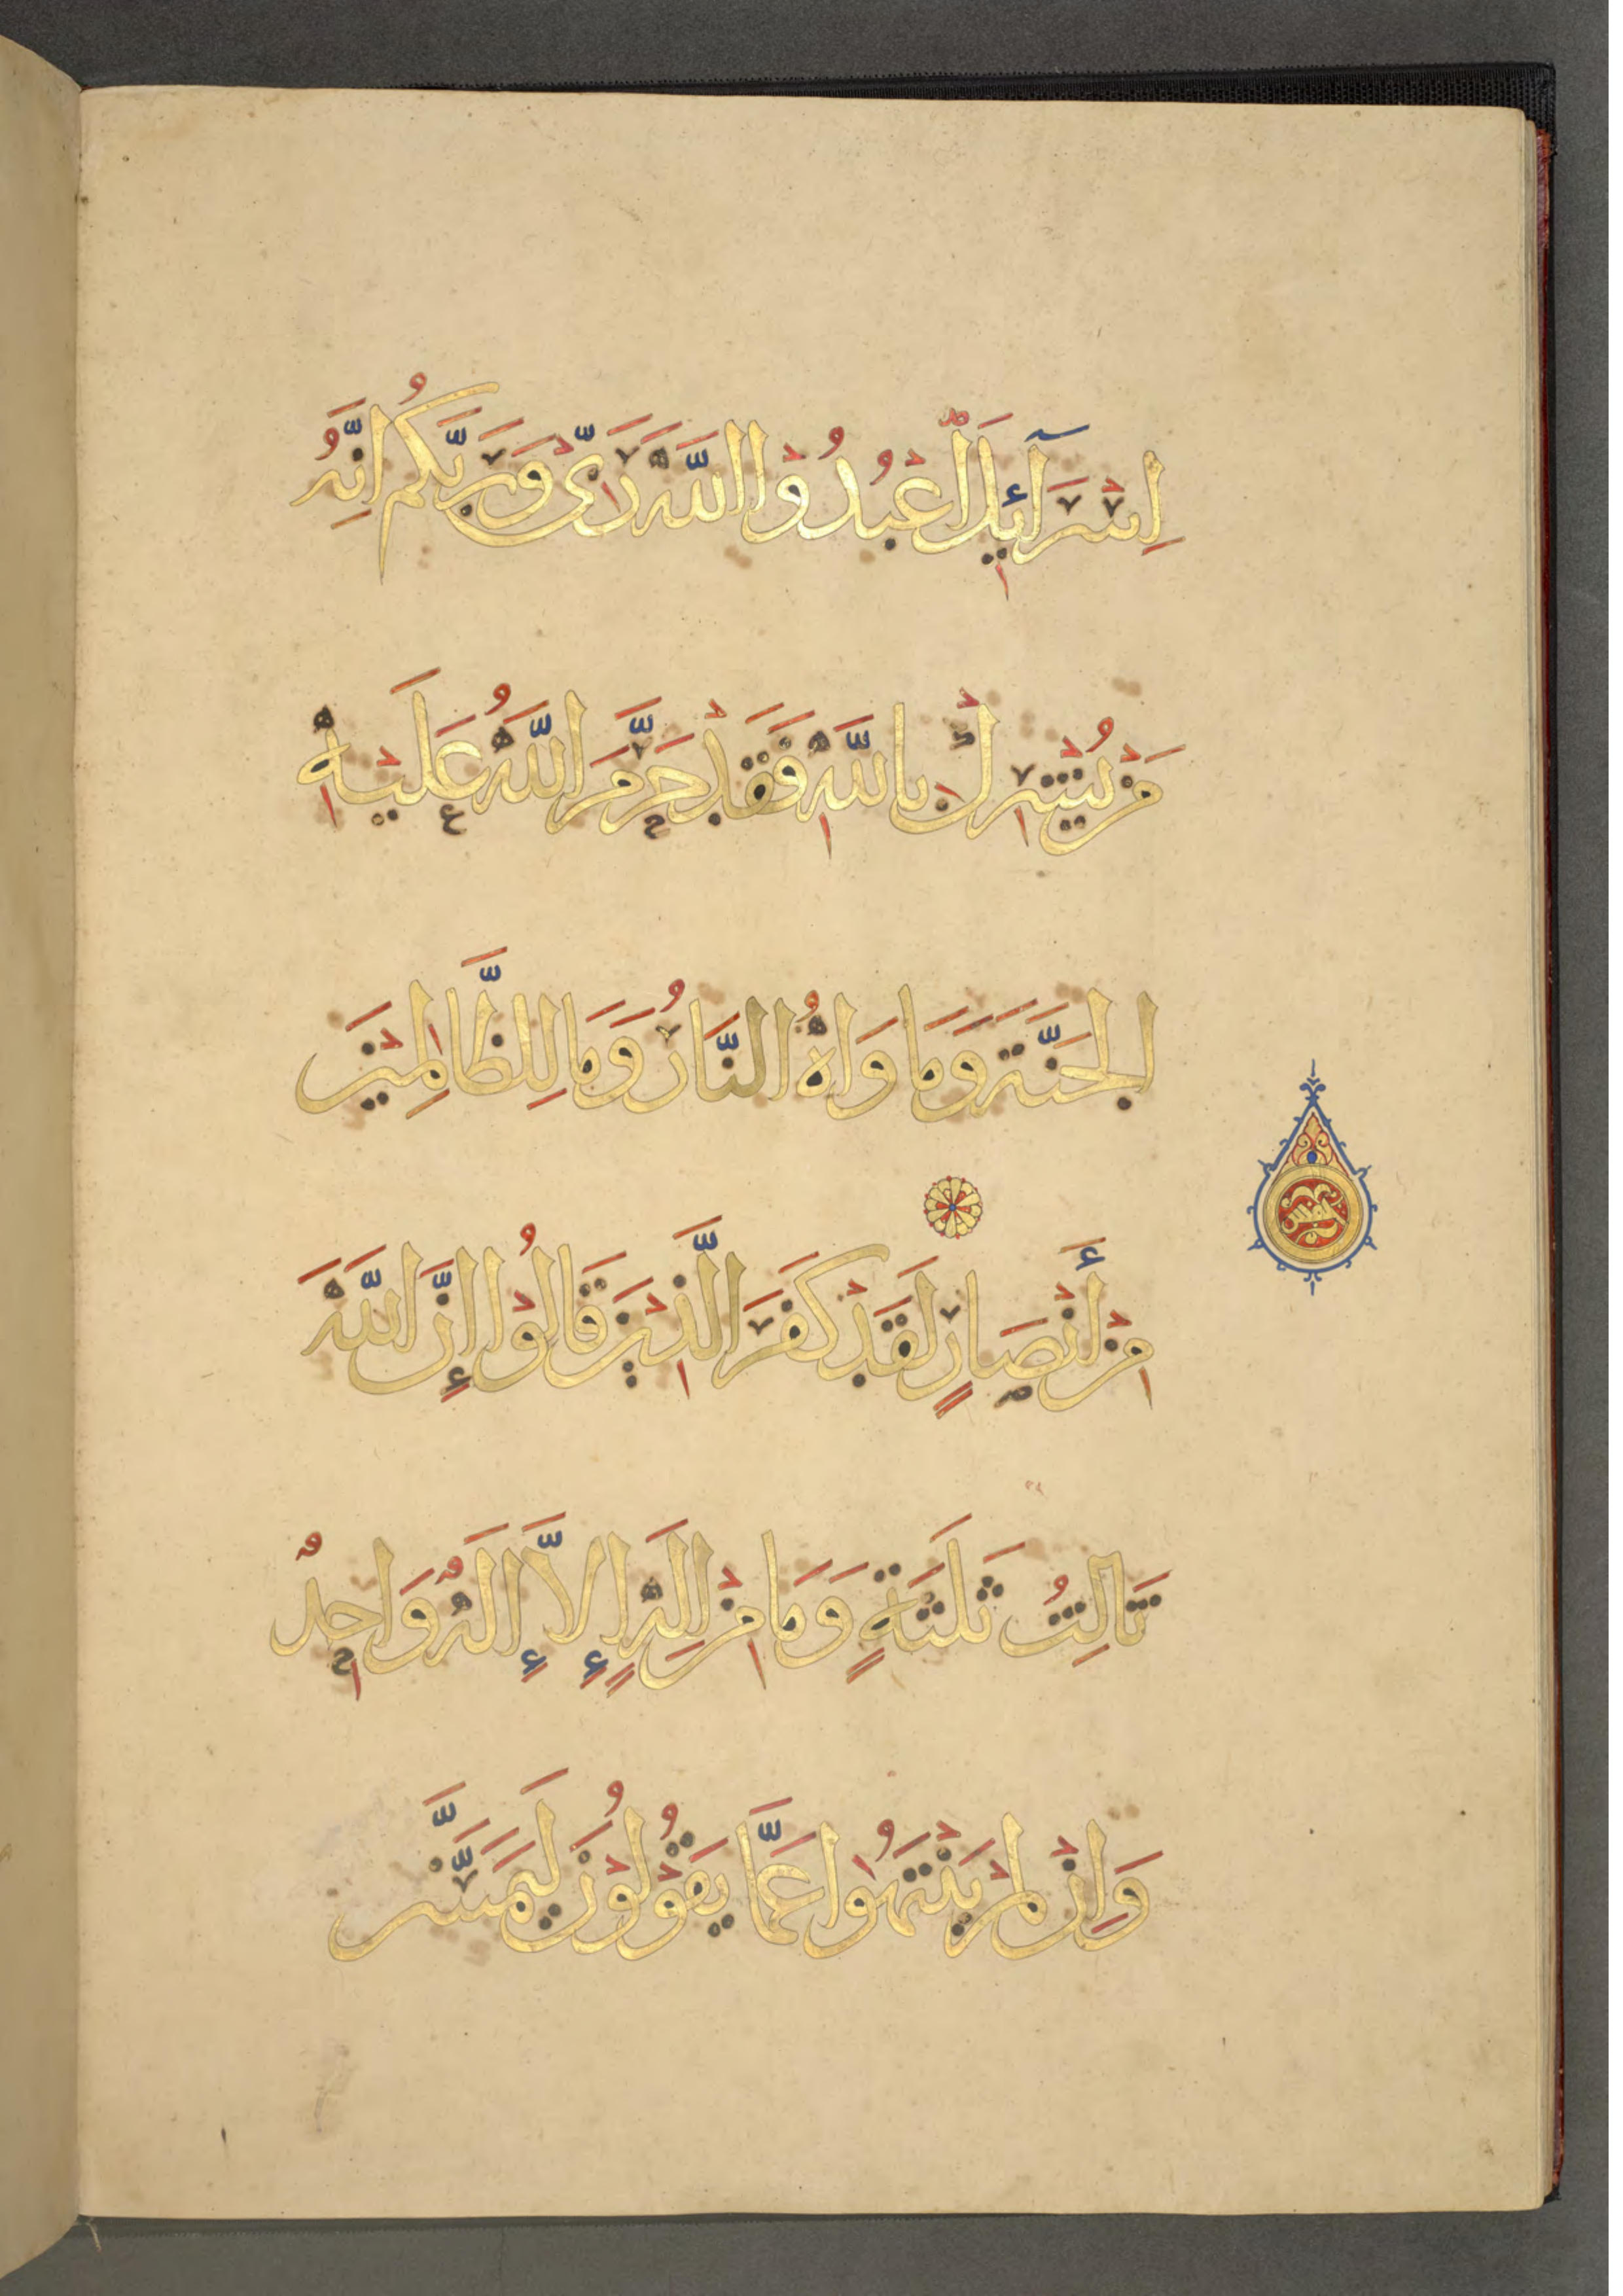 اِسْرَآئِيلَ اعْبُدُوْا اللَّهَ رَبِّىْ وَرَبَّكُمْ اِنَّهُ
مَنْ يُشْرِكْ بِاللَّهِ فَقَدْ حَرَّمَ اللَّهُ عَلَيْهِ
الْجَنَّةَ وَمَاوَاهُ النَّارُ وَمَا لِلظَّالِمِيْنَ
مِنْ أَنْصَارٍ لَقَدْ كَفَرَ الَّذِيْنَ قَالُوْا إِنَّ اللَّهَ
ثَالِثُ ثَلَثَةٍ وَمَا مِنْ اِلَهٍ إِلاَّ إِلَهٌ وَاحِدٌ
وَاِنْ لَمْ يَنْتَهُوا عَمَّا يَقُوْلُوْنَ لَيَمَسَّنَّ